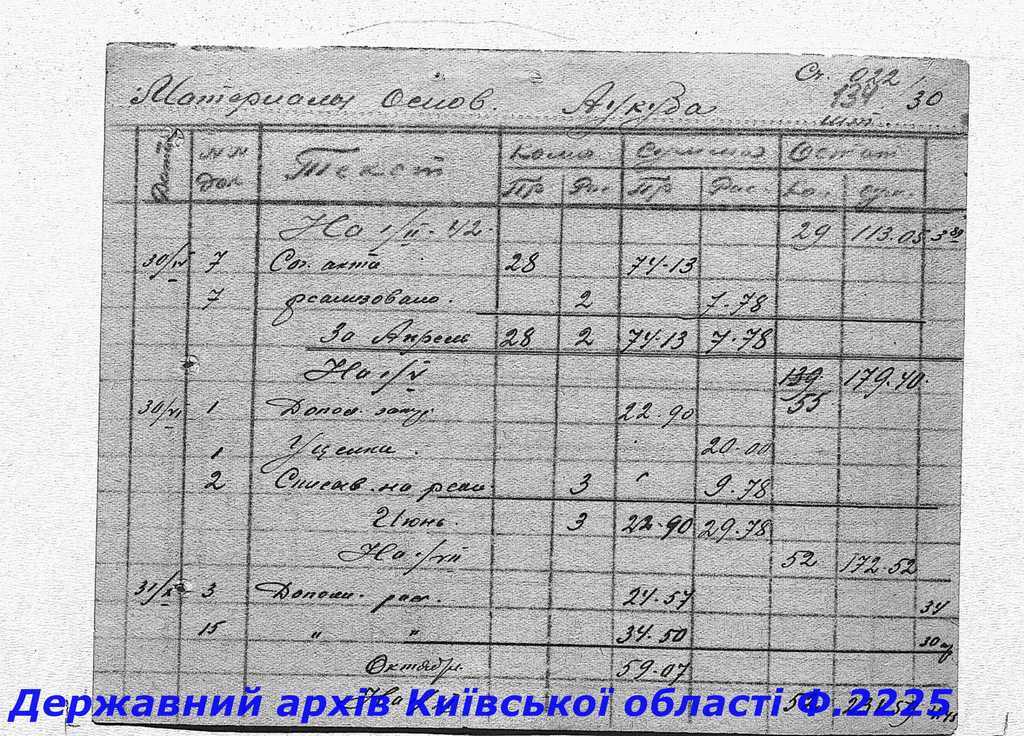 Сч. 022
134 30
Материалы Основ. Аукуба
шт.
NN Док Текст Колич Остат
Пр Рас Пр Рас. Кол
На 1/II-42 29 113.05 3 89
30/IV 7 Сог. акта 28 74-13
7 реализовано. 2 7.78
За Апрель 28 2 74-13 7.78
На 1/V 139 179.40
55
30/VI 1 Допол. 22.90
1 Уценки. 20.00
2 Списыв. на реал. 3 9.78
Июнь. 3 22.90 29.78
На 1/VII 52 172.52
31/X 3 Дополн. рас. 24.57 34
15 " " 34.50 30
Октябрь. 59.07
На
Державний архів Київської області Ф.2225